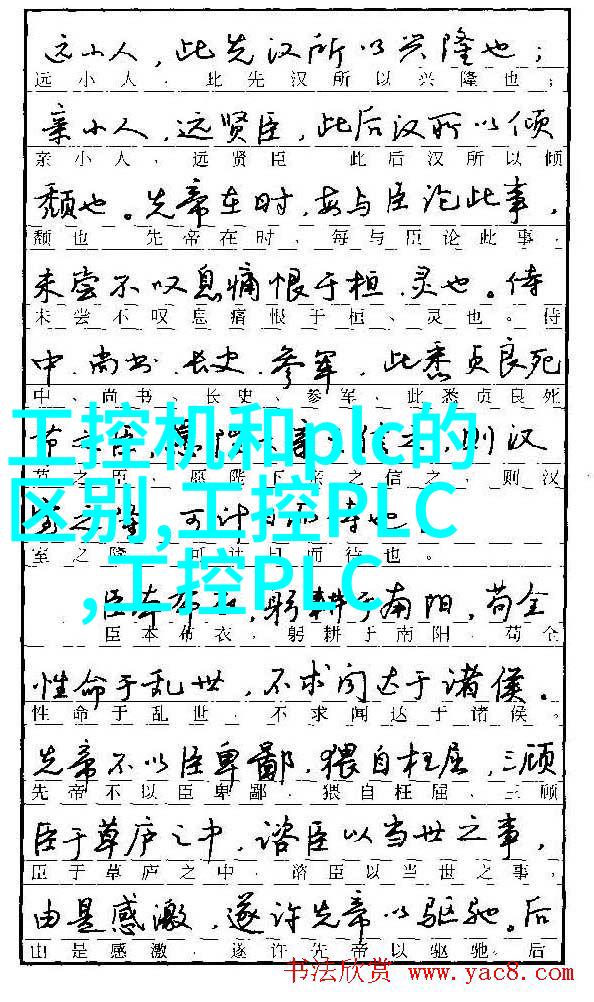 远小人，此先汉所以兴隆也；
远小人，此先汉所以兴隆也；
亲小人，远贤臣，此后汉所以倾
亲小人，远贤臣 此后汉所以倾
颓也。先帝在时，每与臣论此事，
颓也 先帝在时，每与臣论此事，
未尝不叹息痛恨于桓、灵也。侍
未尝不叹息痛恨于桓、灵也。侍
中、尚书、长史、参军，此悉贞良死
中、尚书、长史、参军，此悉贞良死
节之臣，愿陛下亲之信之，则汉
节之臣，愿陛下亲之信之，则汉
室之隆，可计日而待也。
室之隆，可计日而待也。
工控机和plc的
区别,工控PLC
,工控PLC
臣本布衣，躬耕于南阳，苟全
臣本布衣，躬耕于南阳，苟全
性命于乱世，不求闻达于诸侯。
性命于乱世，不求闻达于诸侯。
先帝不以臣卑鄙，猥自枉屈，三顾
先帝不以臣卑鄙，猥自枉屈、三顾
臣于草庐之中，谘臣以当世之事，
臣于草庐之中，谘臣以当世之事，
由是感激，遂许先帝以驱驰。后
由是感激，遂许先帝以驱驰。后
书法欣赏 www.yac8.com